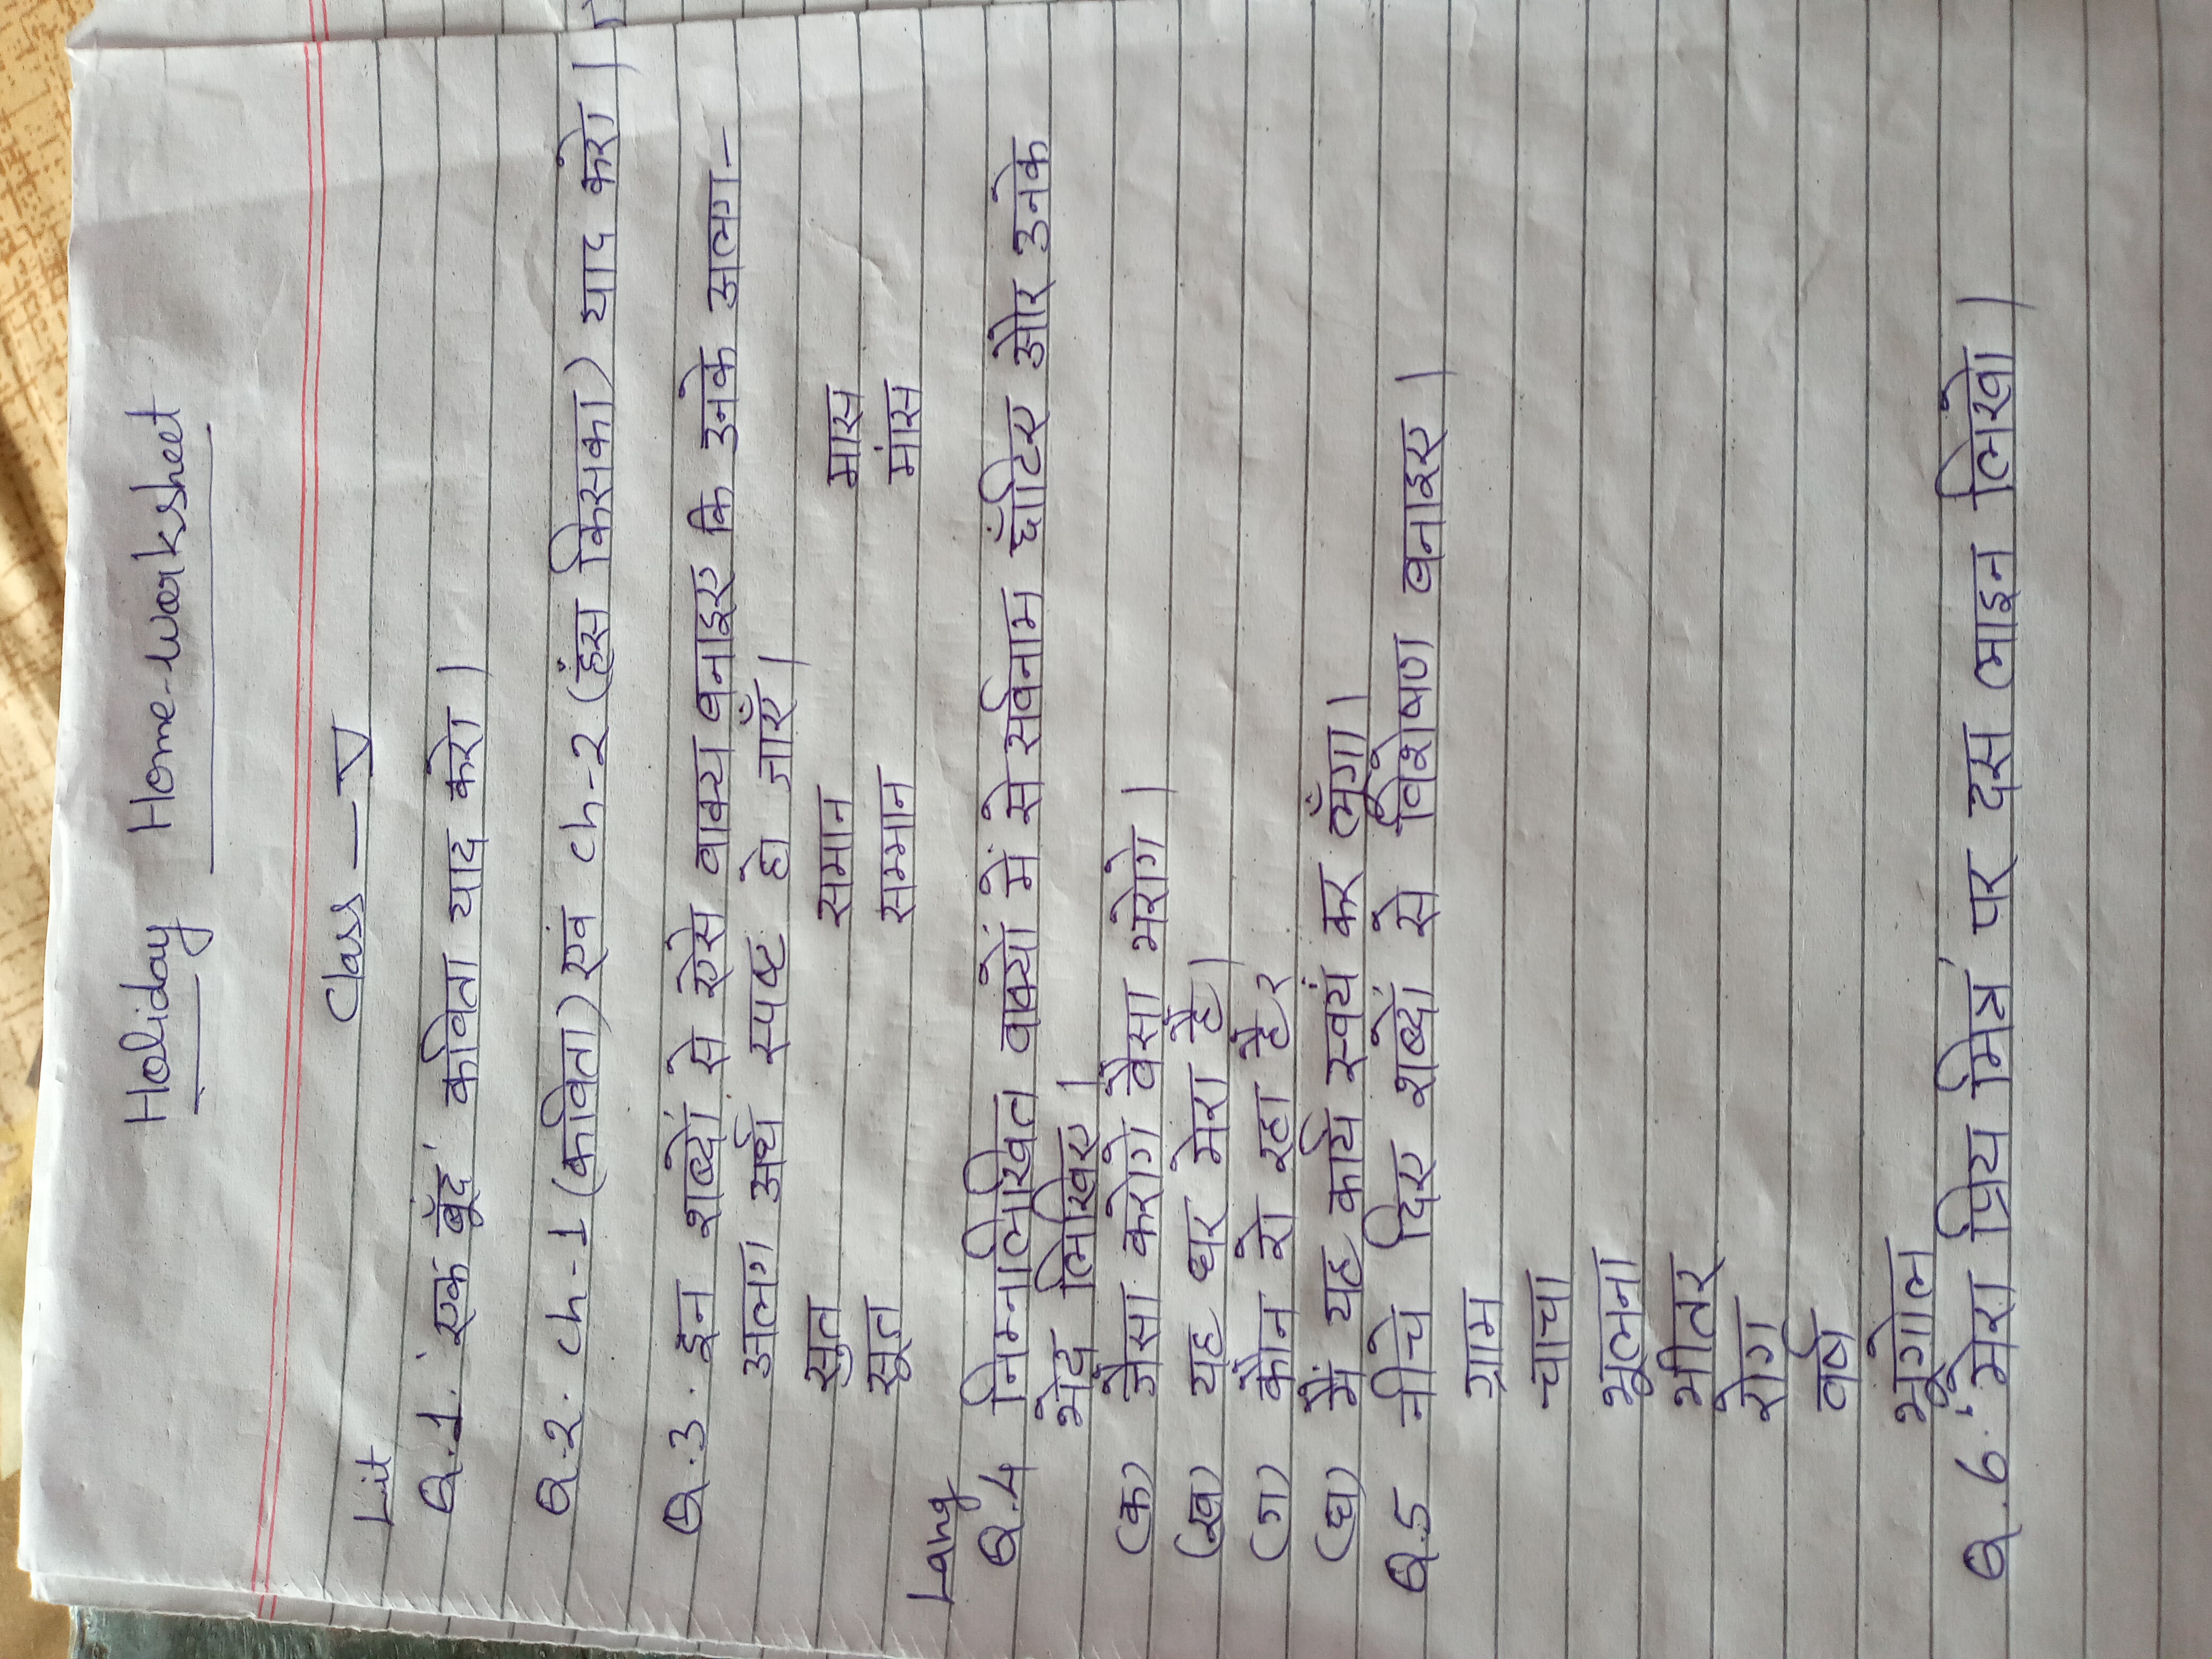 Holiday Home-Worksheet
Class — V
Lit
Q.1. 'एक बूँद' कविता याद करो।
Q.2. ch-1 (कविता) एवं ch-2 (हंस किसका) याद करो।
Q.3. इन शब्दों से ऐसे वाक्य बनाइए कि उनके अलग-
अलग अर्थ स्पष्ट हो जाएँ।
सुत समान मास
सूत सम्मान मांस
Lang
Q.4 निम्नलिखित वाक्यों में से सर्वनाम छाँटिए और उनके
भेद लिखिए।
(क) जैसा करोगे वैसा भरोगे।
(ख) यह घर मेरा है।
(ग) कौन रो रहा है?
(घ) मैं यह कार्य स्वयं कर लूँगा।
Q.5 नीचे दिए शब्दों से विशेषण बनाइए।
ग्राम
चाचा
भूलना
भीतर
रोग
वर्ष
भूगोल
Q.6. 'मेरा प्रिय मित्र' पर दस लाइन लिखो।